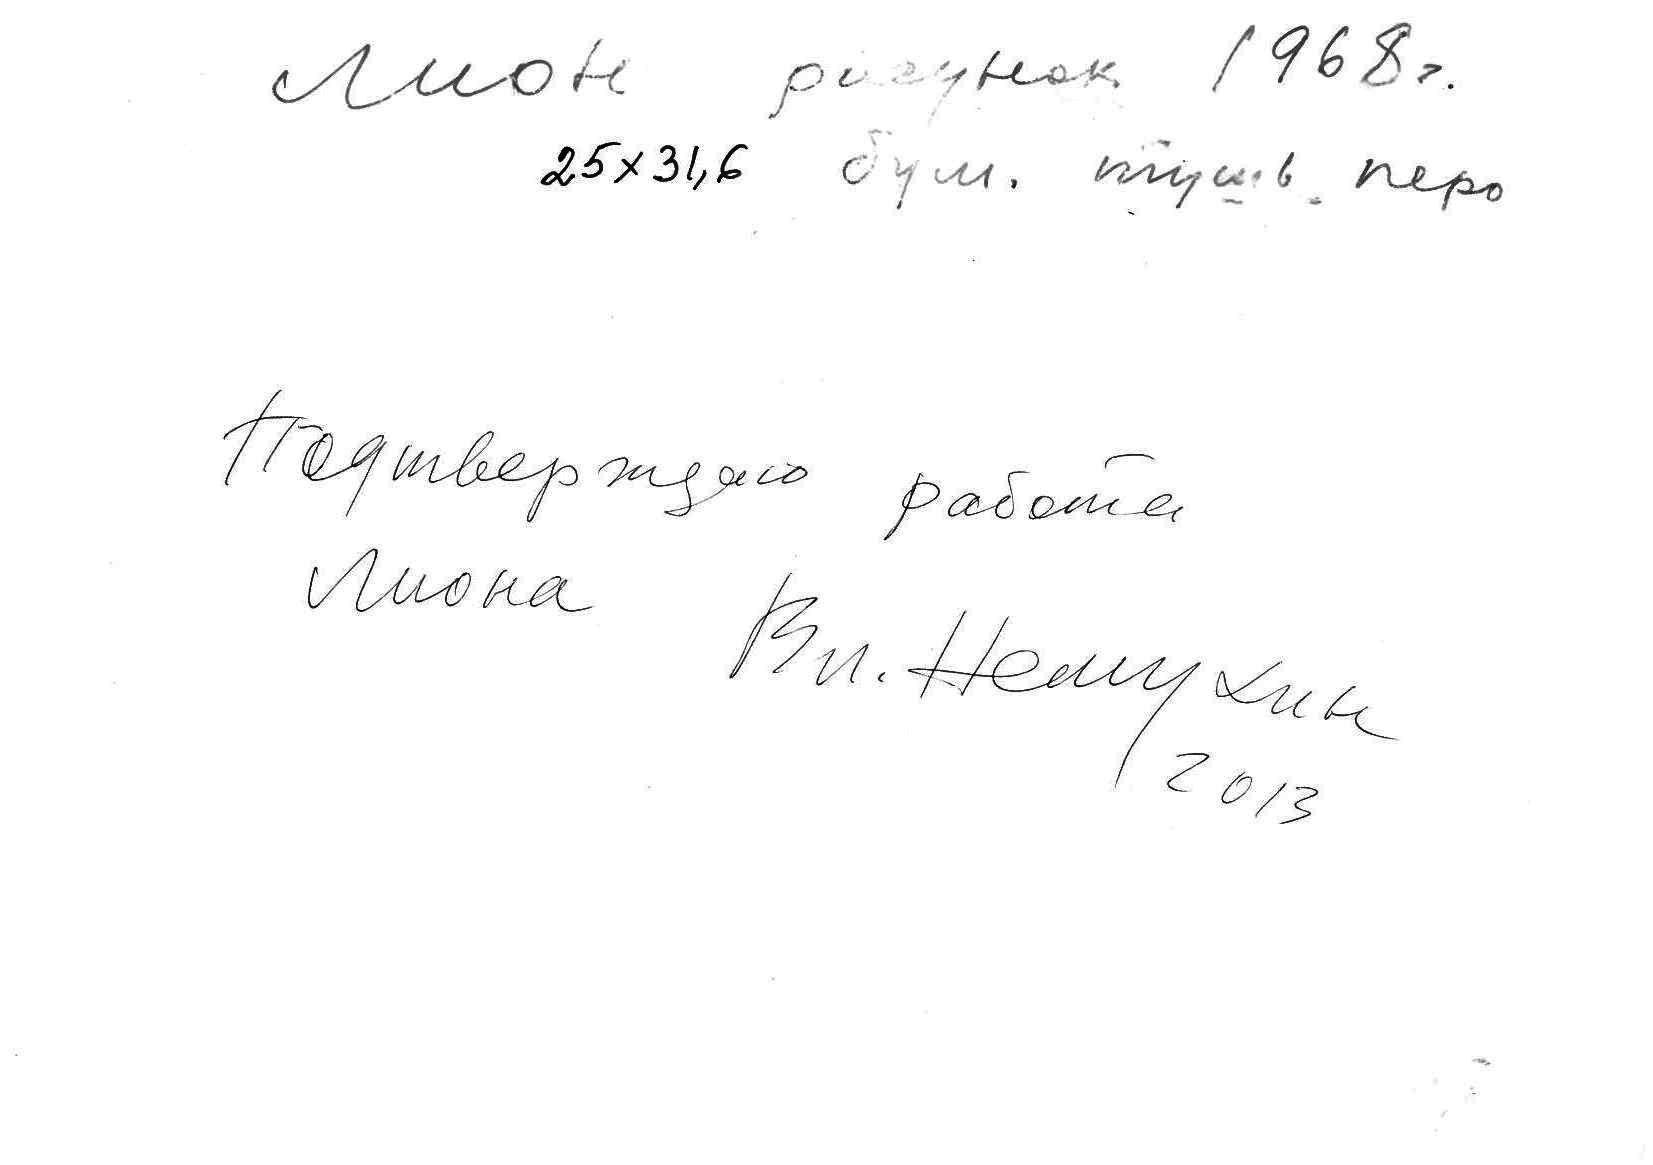 Лион рисунок 1968г.
25х31,6 бум. тушь. перо
Подтверждаю работа
Лиона
Вл. Немухин
2013